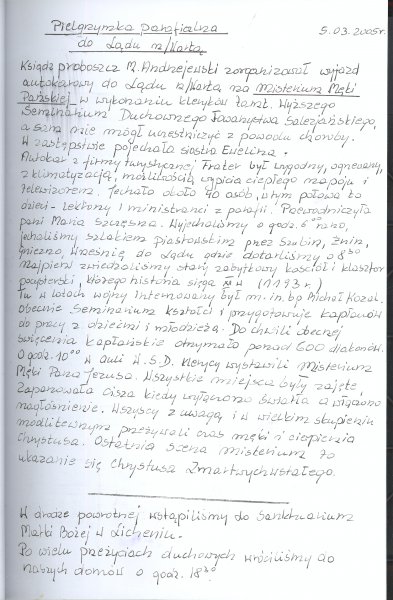 Pielgrzymka parafialna 5.03.2005r.
do Lądu n/Wartą
Ksiądz proboszcz M. Andrzejewski zorganizował wyjazd
autokarowy do Lądu n/Wartą na Misterium Męki
Pańskiej w wykonaniu kleryków tamt. Wyższego
Seminarium Duchownego Towarzystwa Salezjańskiego,
a sam nie mógł uczestniczyć z powodu choroby.
W zastępstwie pojechała siostra Ewelina.
Autokar z firmy turystycznej Frater był wygodny, ogrzewany,
z klimatyzacją, możliwością wypicia ciepłego napoju i
telewizorem. Jechało około 40 osób, w tym połowa to
dzieci - lektorzy i ministranci z parafii. Przewodniczyła
pani Maria Szczęsna. Wyjechaliśmy o godz. 6⁰⁰ rano,
jechaliśmy szlakiem piastowskim przez Szubin, Żnin,
Gniezno, Wrześnię do Lądu gdzie dotarliśmy o 8³⁰
Najpierw zwiedzaliśmy stary zabytkowy kościół i klasztor
pocysterski, którego historia sięga XII w (1193 r.)
Tu w latach wojny internowany był m.in. bp Michał Kozal.
Obecnie Seminarium kształci i przygotowuje kapłanów
do pracy z dziećmi i młodzieżą. Do chwili obecnej
święcenia kapłańskie otrzymało ponad 600 diakonów.
O godz. 10⁰⁰ w auli W.S.D. klerycy wystawili misterium
Męki Pana Jezusa. Wszystkie miejsca były zajęte.
Zapanowała cisza kiedy wyłączono światła a włączono
nagłośnienie. Wszyscy z uwagą i w wielkim skupieniu
modlitewnym przeżywali czas męki i cierpienia
Chrystusa. Ostatnia scena misterium to
ukazanie się Chrystusa Zmartwychwstałego.
W drodze powrotnej wstąpiliśmy do Sanktuarium
Matki Bożej w Licheniu.
Po wielu przeżyciach duchowych wróciliśmy do
naszych domów o godz. 18³⁰